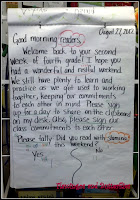 August 27, 2012
Good morning readers,
Welcome back to your second
week of fourth grade! I hope you
had a wonderful and restful weekend.
We still have plenty to learn and
practice as we get used to working
together, keeping our commitments
to each other in mind. Please sign
up for a day to share on the clipboard
on my desk. Also, please sign our
class commitments to each other.
Please tally: Did you read with stamina
this weekend?
Yes
No